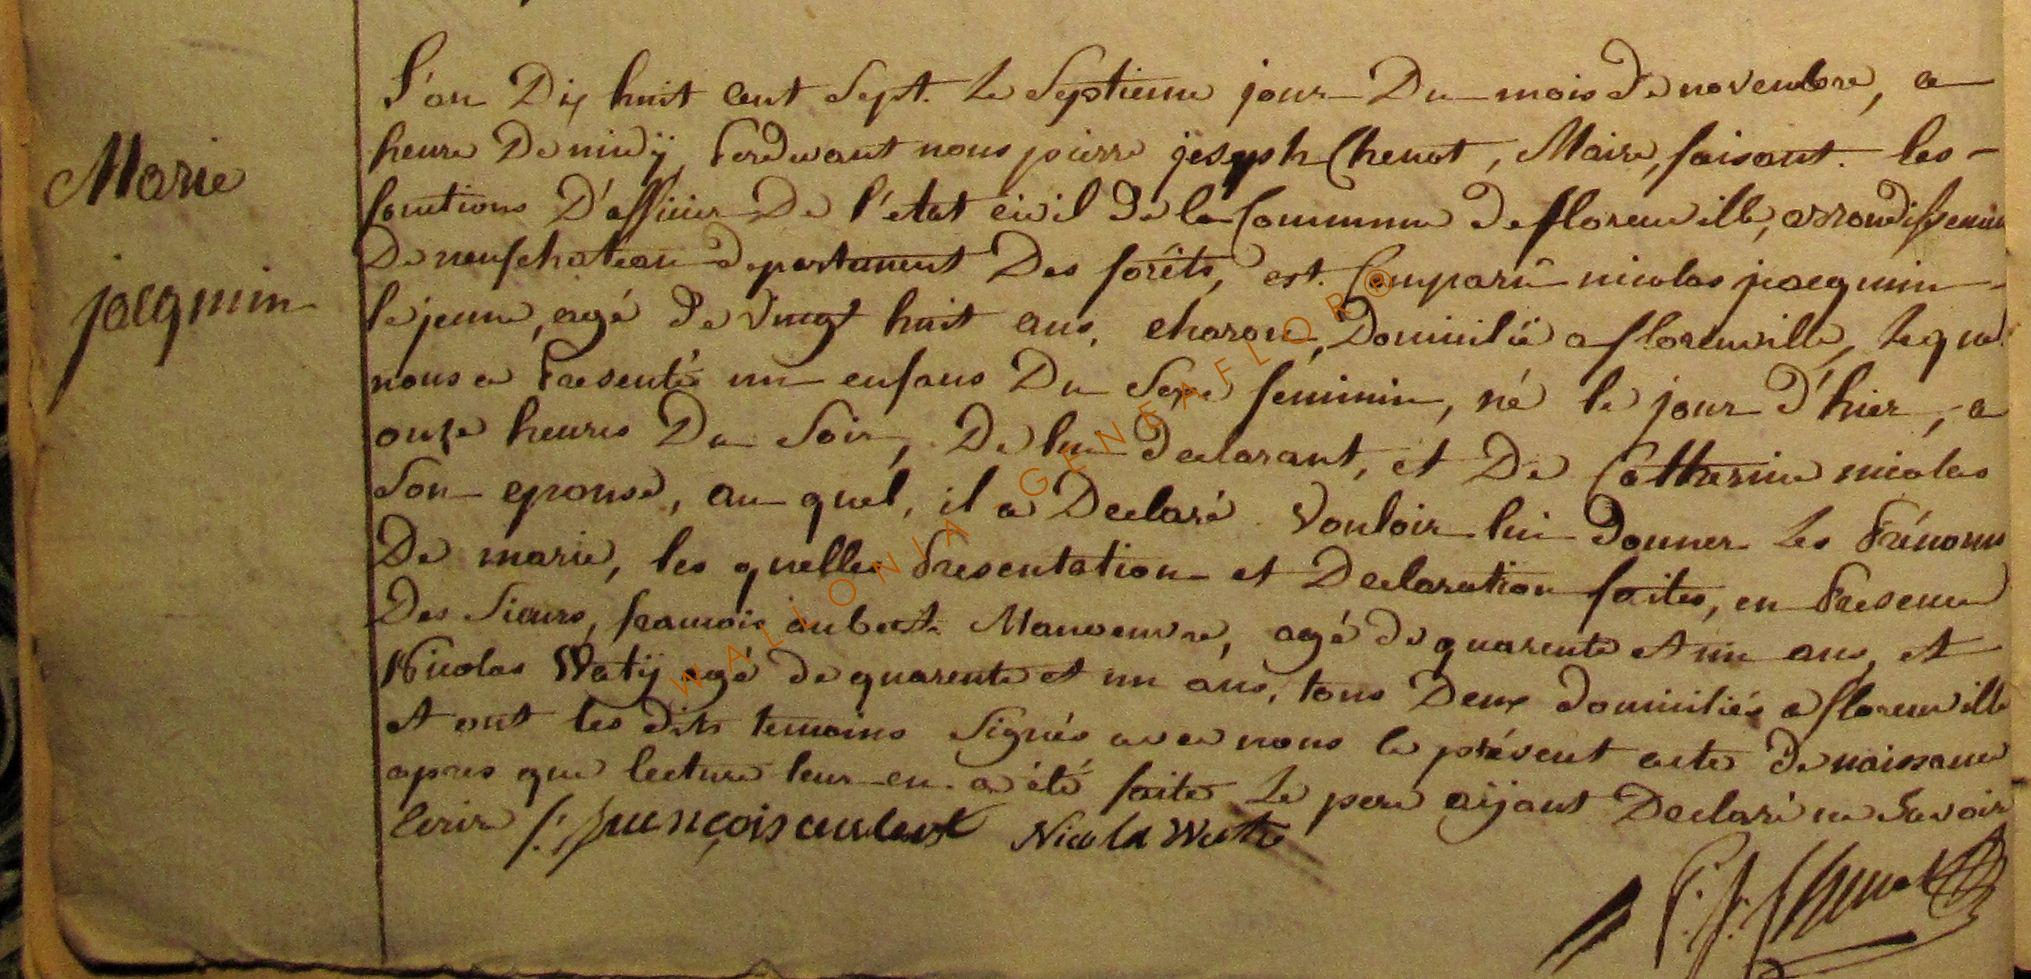 Marie
jacqmin
L'an Dix huit cent Sept. Le Septieme jour Du mois De novembre, a
heure De midÿ, Perdevant nous pierre joseph Chenot, Maire, faisant les
fonctions D'officier De l'etat civil De la Commune De florenville, arrondissement
De neufchateau departement Des forêts, est Comparû nicolas jacqmin
le jeune, agé De vingt huit ans, charon, Domicilié a florenville, Lequel
nous a Presenté un enfans Du Sexe feminin, né le jour d'hier, a
onze heures Du Soir, De lui Declarant, et De Catherine nicolas
Son epouse, au quel, il a Declaré Vouloir lui Donner Les Prénoms
De marie, les quelles Presentation et Declaration faites, en Presence
Des Sieurs, francois aubert Manoeuvre, agé De quarente et un ans, et
Nicolas Watÿ agé De quarente et un ans, tous Deux domiciliés a florenville
et ont les dits temoins Signés avec nous le présent acte De naissance
apres que lecture leur en a été faite Le pere aÿant Declaré ne Savoir
Ecrire François aubert Nicola
P. J. Chenot
WALLONIA GENEAFLOR©